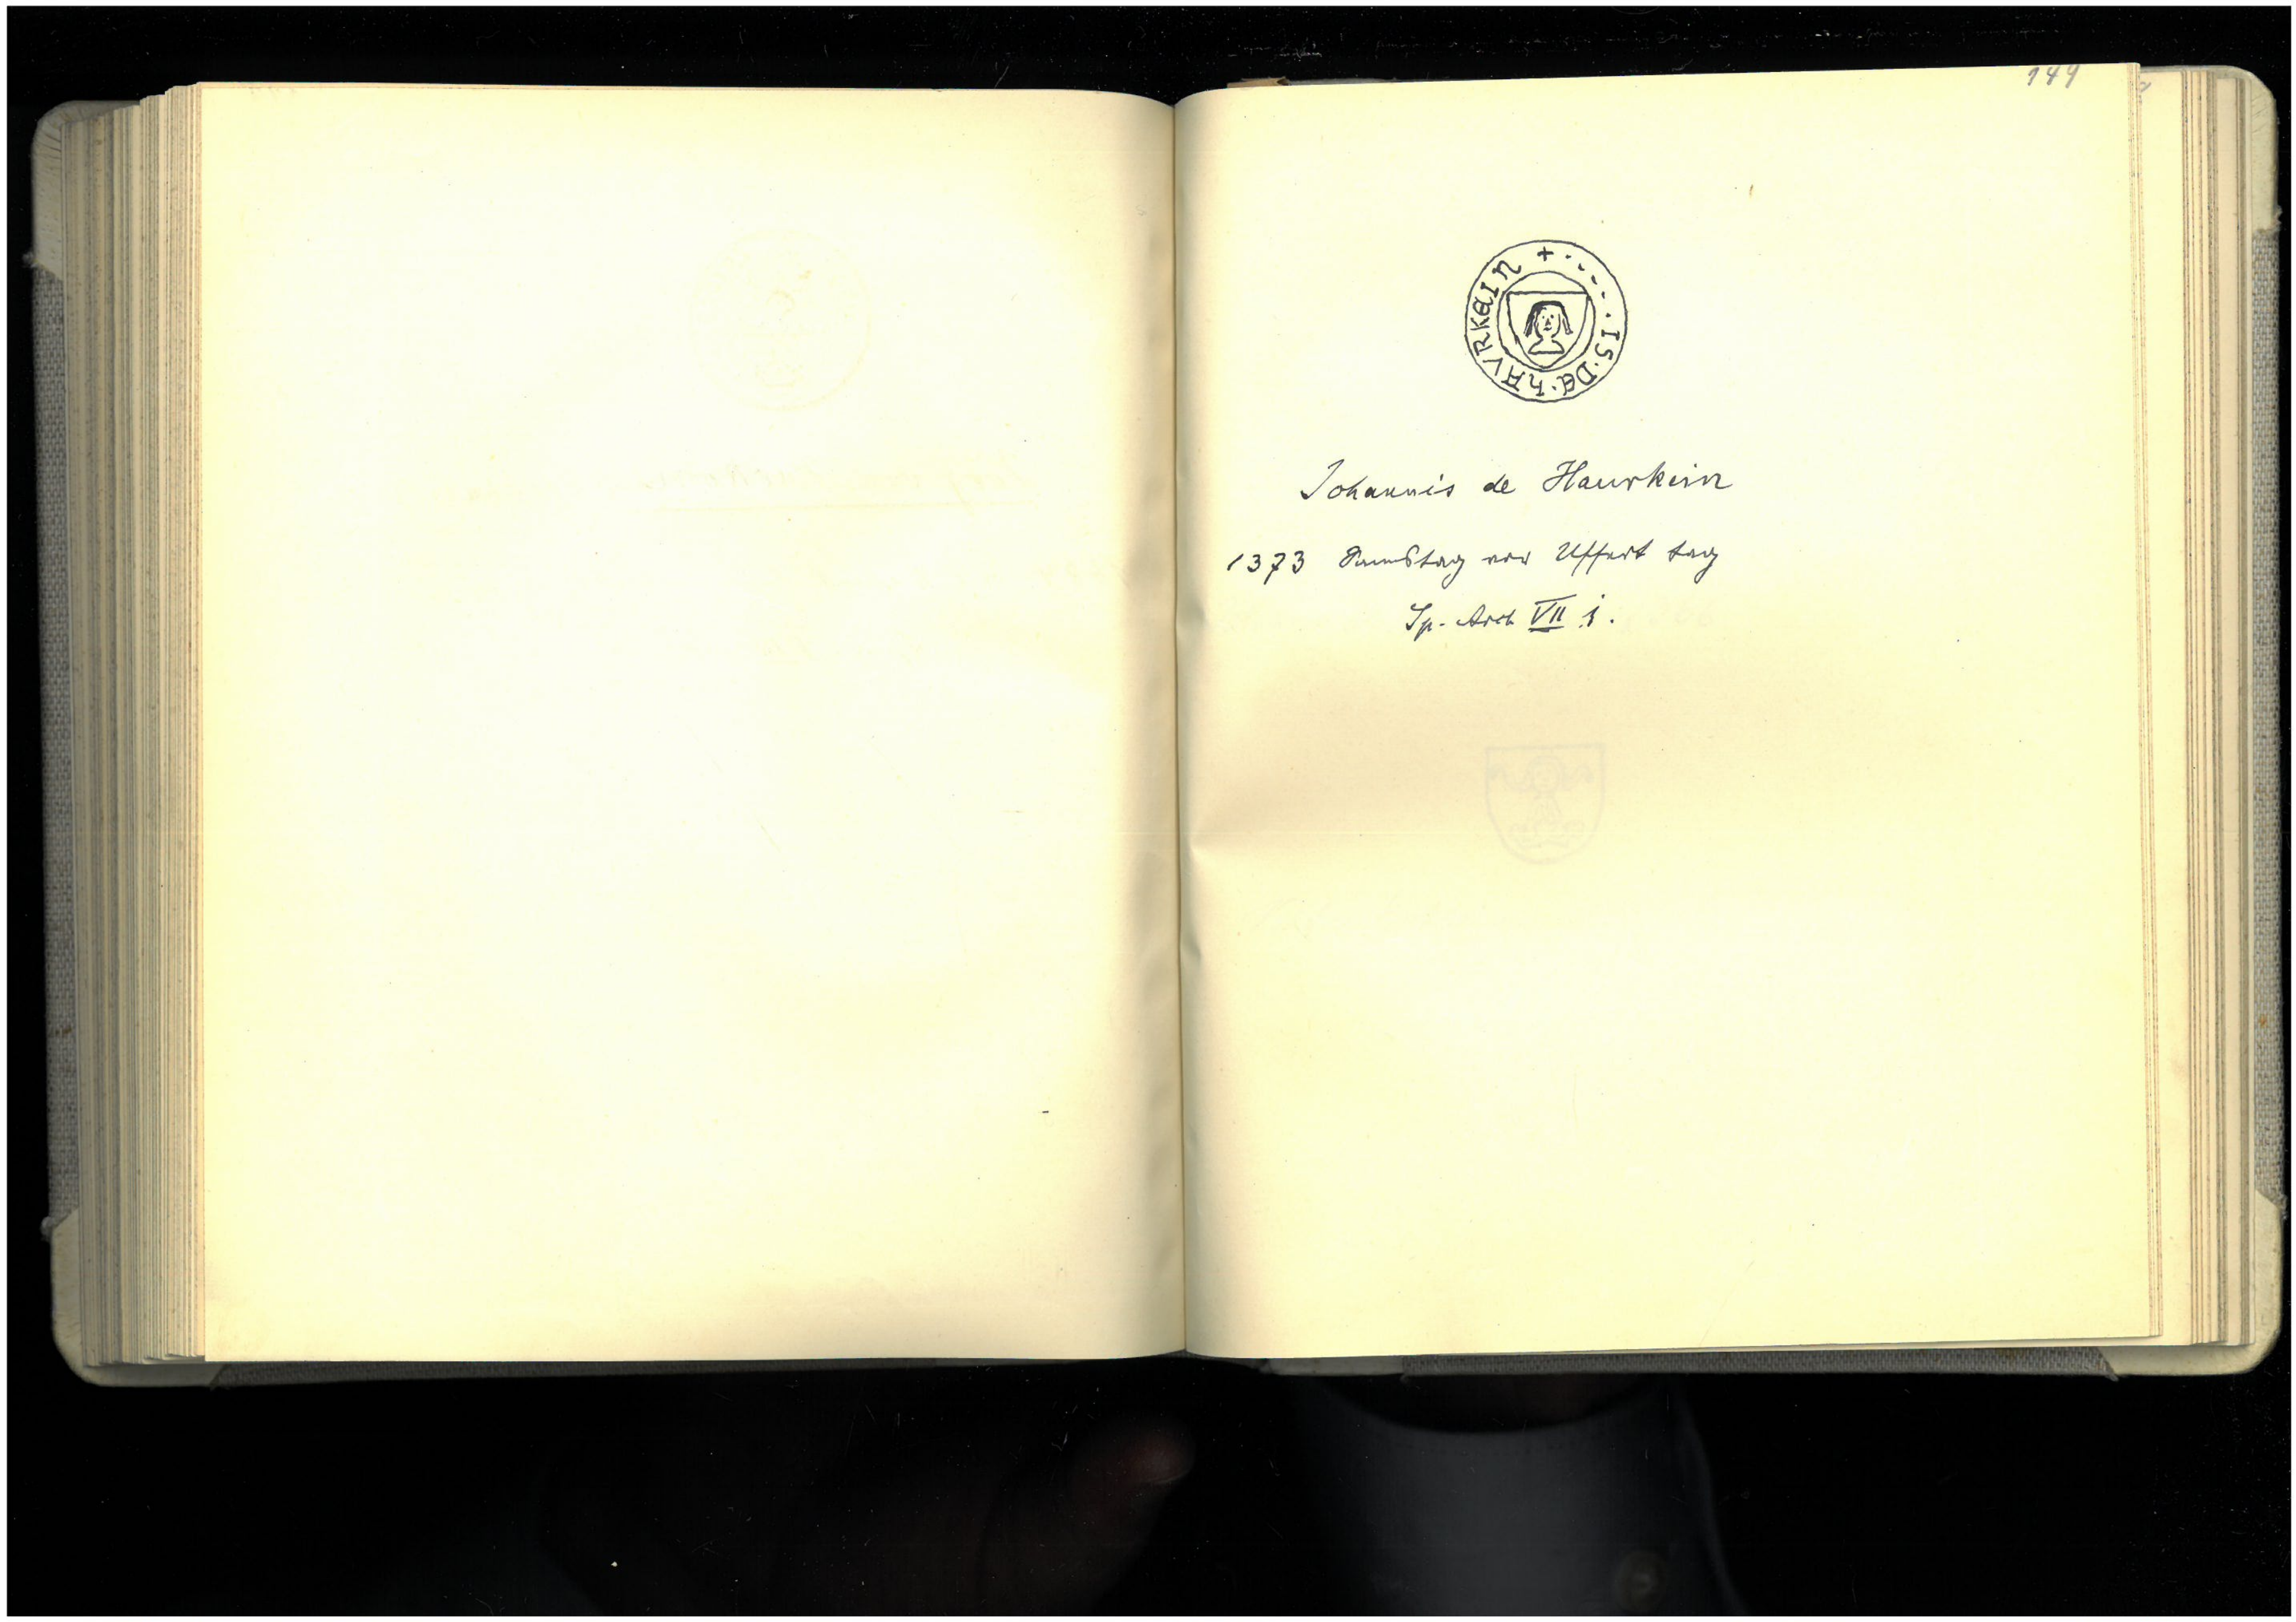 144
+ · - - - - · IS · DE · hAVRKEIN
Johannis de Haurkein
1373 Samstag vor Uffert tag
Sp. Arch VII